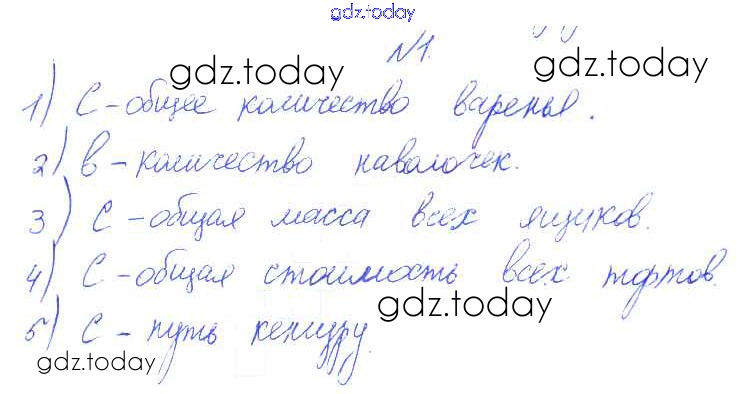 gdz.today
N1.
gdz.today gdz.today
1) C - общее количество варенья.
2) в - количество наволочек.
3) C - общая масса всех ящиков.
4) C - общая стоимость всех тортов.
gdz.today
5) C - путь кенгуру.
gdz.today